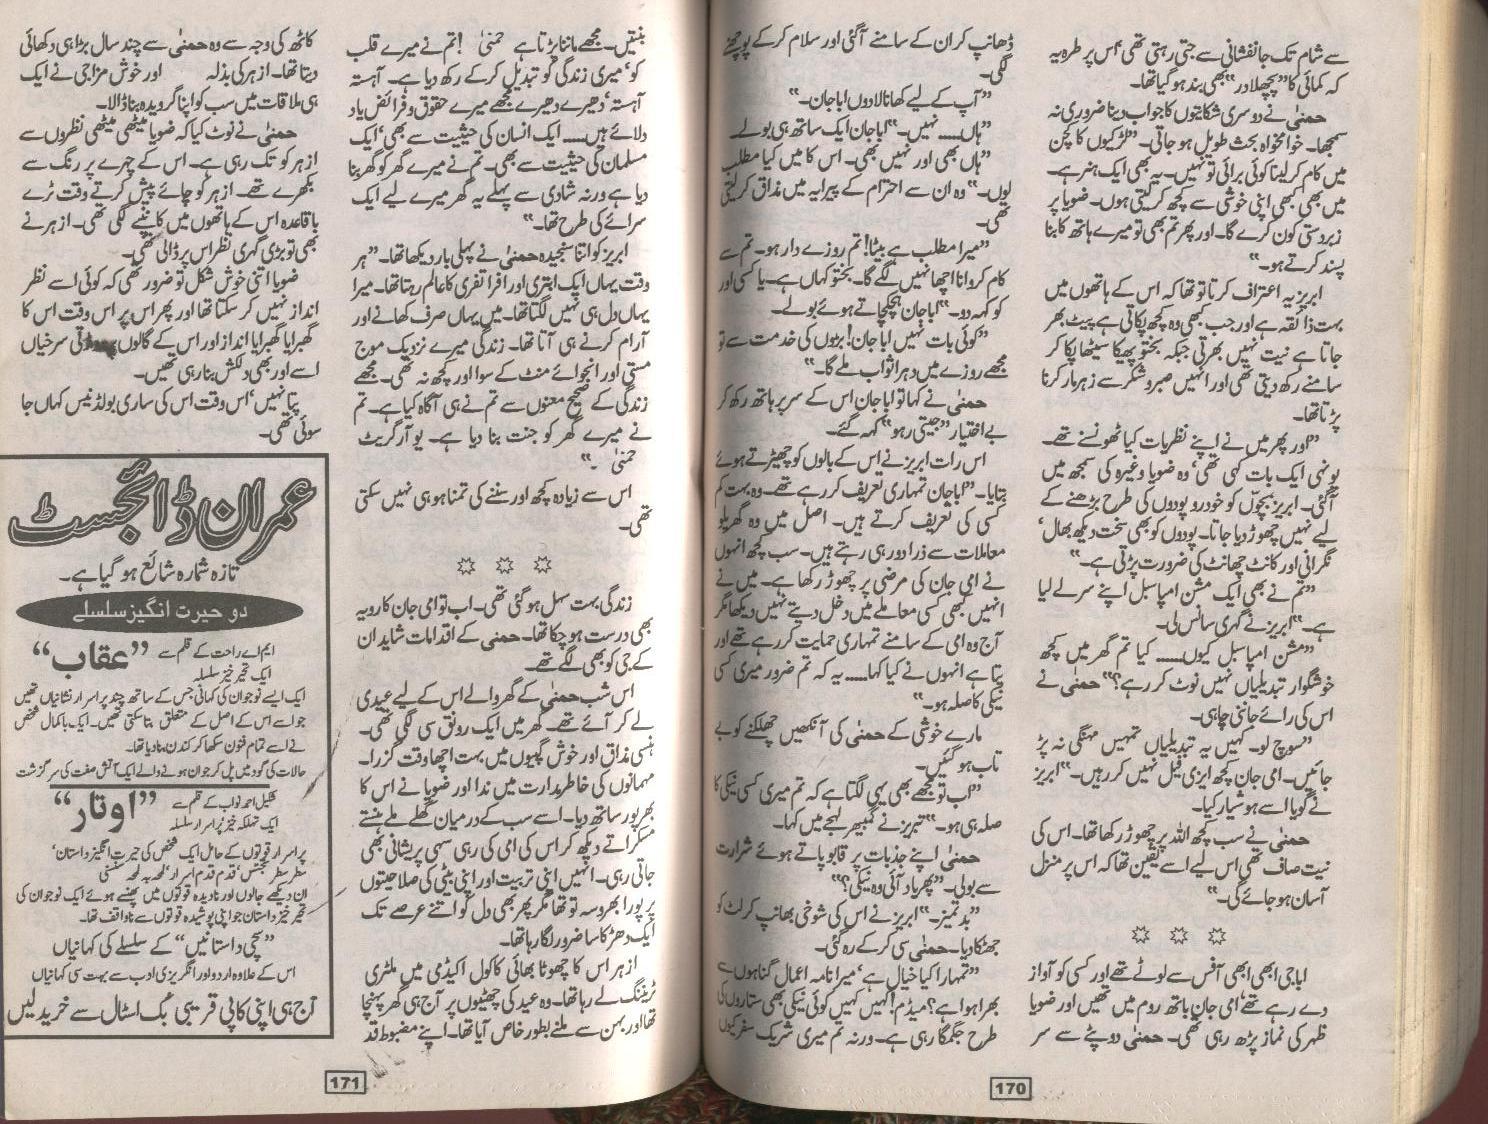 سے شام تک جانفشانی سے جتی رہتی تھی‘ اس پر طرہ یہ
کہ کمائی کا ”پچھلا در“ بھی بند ہو گیا تھا۔
حمنیٰ نے دوسری شکایتوں کا جواب دینا ضروری نہ
سمجھا۔ خوامخواہ بحث طویل ہو جاتی۔ ”لڑکیوں کا کچن
میں کام کر لینا کوئی برائی تو نہیں۔ یہ بھی ایک ہنر ہے۔
میں بھی کبھی اپنی خوشی سے کچھ کر لیتی ہوں۔ ضویا پر
زبردستی کون کرے گا۔ اور پھر تم بھی تو میرے ہاتھ کا بنا
پسند کرتے ہو۔“
ابریز یہ اعتراف کرتا تو تھا کہ اس کے ہاتھوں میں
بہت ذائقہ ہے اور جب کبھی وہ کچھ پکاتی ہے پیٹ بھر
جاتا ہے نیت نہیں بھرتی جبکہ بختو پھیکا سیٹھا پکا کر
سامنے رکھ دیتی تھی اور انہیں صبر و شکر سے زہر مار کرنا
پڑتا تھا۔
”اور پھر میں نے اپنے نظریات کیا ٹھونسنے تھے۔
یونہی ایک بات کہی تھی‘ وہ ضویا وغیرہ کی سمجھ میں
آگئی۔ ابریز بچوں کو خودرو پودوں کی طرح بڑھنے کے
لیے نہیں چھوڑ دیا جاتا۔ پودوں کو بھی سخت دیکھ بھال‘
نگرانی اور کانٹ چھانٹ کی ضرورت پڑتی ہے۔“
”تم نے بھی ایک مشن امپاسبل اپنے سر لے لیا
ہے۔“ ابریز نے گہری سانس لی۔
”مشن امپاسبل کیوں۔۔۔۔ کیا تم گھر میں کچھ
خوشگوار تبدیلیاں نہیں نوٹ کر رہے؟“ حمنیٰ نے
اس کی رائے جاننی چاہی۔
”سوچ لو۔ کہیں یہ تبدیلیاں تمہیں مہنگی نہ پڑ
جائیں۔ امی جان کچھ ایزی فیل نہیں کر رہیں۔“ ابریز
نے گویا اسے ہوشیار کیا۔
حمنیٰ نے سب کچھ اللہ پر چھوڑ رکھا تھا۔ اس کی
نیت صاف تھی اس لیے اسے یقین تھا کہ اس پر منزل
آسان ہو جائے گی۔“
ابا جی ابھی ابھی آفس سے لوٹے تھے اور کسی کو آواز
دے رہے تھے‘ امی جان باتھ روم میں تھیں اور ضویا
ظہر کی نماز پڑھ رہی تھی۔ حمنیٰ دوپٹے سے سر
ڈھانپ کر ان کے سامنے آگئی اور سلام کر کے پوچھنے
لگی۔
”آپ کے لیے کھانا لا دوں ابا جان۔“
”ہاں۔۔۔۔ نہیں۔“ ابا جان ایک ساتھ ہی بولے۔
”ہاں بھی اور نہیں بھی۔ اس کا میں کیا مطلب
لوں۔“ وہ ان سے احترام کے پیرایہ میں مذاق کر لیتی
تھی۔
”میرا مطلب ہے بیٹا! تم روزے دار ہو۔ تم سے
کام کروانا اچھا نہیں لگے گا۔ بختو کہاں ہے۔ یا کسی اور
کو کہہ دو۔“ ابا جان ہچکچاتے ہوئے بولے۔
”کوئی بات نہیں ابا جان! بڑوں کی خدمت سے تو
مجھے روزے میں دہرا ثواب ملے گا۔“
حمنیٰ نے کہا تو ابا جان اس کے سر پر ہاتھ رکھ کر
بے اختیار ”جیتی رہو“ کہہ گئے۔
اس رات ابریز نے اس کے بالوں کو چھیڑتے ہوئے
بتایا۔ ”ابا جان تمہاری تعریف کر رہے تھے۔ وہ بہت کم
کسی کی تعریف کرتے ہیں۔ اصل میں وہ گھریلو
معاملات سے ذرا دور ہی رہتے ہیں۔ سب کچھ انہوں
نے امی جان کی مرضی پر چھوڑ رکھا ہے۔ میں نے
انہیں کبھی کسی معاملے میں دخل دیتے نہیں دیکھا مگر
آج وہ امی کے سامنے تمہاری حمایت کر رہے تھے اور
پتا ہے انہوں نے کیا کہا۔۔۔۔ یہ کہ تم ضرور میری کسی
نیکی کا صلہ ہو۔“
مارے خوشی کے حمنیٰ کی آنکھیں چھلکنے کو بے
تاب ہو گئیں۔
”اب تو مجھے بھی یہی لگتا ہے کہ تم میری کسی نیکی کا
صلہ ہی ہو۔“ تبریز نے گمبھیر لہجے میں کہا۔
حمنیٰ اپنے جذبات پر قابو پاتے ہوئے شرارت
سے بولی۔ ”پھر یاد آئی وہ نیکی؟“
”بدتمیز۔“ ابریز نے اس کی شوخی بھانپ کر لٹ کو
جھٹکا دیا۔ حمنیٰ سی کر کے رہ گئی۔
”تمہارا کیا خیال ہے‘ میرا نامہ اعمال گناہوں سے
بھرا ہوا ہے؟ میڈم! کہیں کہیں کوئی نیکی بھی ستاروں کی
طرح جگمگا رہی ہے۔ ورنہ تم میری شریک سفر کیوں
170
بنتیں۔ مجھے ماننا پڑتا ہے حمنیٰ! تم نے میرے قلب
کو‘ میری زندگی کو تبدیل کر کے رکھ دیا ہے۔ آہستہ
آہستہ‘ دھیرے دھیرے مجھے میرے حقوق و فرائض یاد
دلائے ہیں۔۔۔۔ ایک انسان کی حیثیت سے بھی‘ ایک
مسلمان کی حیثیت سے بھی۔ تم نے میرے گھر کو گھر بنا
دیا ہے ورنہ شادی سے پہلے یہ گھر میرے لیے ایک
سرائے کی طرح تھا۔“
ابریز کو اتنا سنجیدہ حمنیٰ نے پہلی بار دیکھا تھا۔ ”ہر
وقت یہاں ایک ابتری اور افراتفری کا عالم رہتا تھا۔ میرا
یہاں دل ہی نہیں لگتا تھا۔ میں یہاں صرف کھانے اور
آرام کرنے ہی آتا تھا۔ زندگی میرے نزدیک موج
مستی اور انجوائے منٹ کے سوا اور کچھ نہ تھی۔ مجھے
زندگی کے صحیح معنوں سے تم نے ہی آگاہ کیا ہے۔ تم
نے میرے گھر کو جنت بنا دیا ہے۔ یو آر گریٹ
حمنیٰ۔“
اس سے زیادہ کچھ اور سننے کی تمنا ہو ہی نہیں سکتی
تھی۔
زندگی بہت سہل ہو گئی تھی۔ اب تو امی جان کا رویہ
بھی درست ہو چکا تھا۔ حمنیٰ کے اقدامات شاید ان
کے جی کو بھی لگے تھے۔
اس شب حمنیٰ کے گھر والے اس کے لیے عیدی
لے کر آئے تھے۔ گھر میں ایک رونق سی لگی تھی۔
ہنسی مذاق اور خوش گپیوں میں بہت اچھا وقت گزرا۔
مہمانوں کی خاطر مدارت میں ندا اور ضویا نے اس کا
بھرپور ساتھ دیا۔ اسے سب کے درمیان گھلے ملے ہنستے
مسکراتے دیکھ کر اس کی امی کی رہی سہی پریشانی بھی
جاتی رہی۔ انہیں اپنی تربیت اور اپنی بیٹی کی صلاحیتوں
پر پورا بھروسہ تو تھا مگر پھر بھی دل کو اتنے عرصے تک
ایک دھڑکا سا ضرور لگا رہا تھا۔
ازہر اس کا چھوٹا بھائی کاکول اکیڈمی میں ملٹری
ٹریننگ لے رہا تھا۔ وہ عید کی چھٹیوں پر آج ہی گھر پہنچا
تھا اور بہن سے ملنے بطور خاص آیا تھا۔ اپنے مضبوط قد
کاٹھ کی وجہ سے وہ حمنیٰ سے چند سال بڑا ہی دکھائی
دیتا تھا۔ ازہر کی بذلہ اور خوش مزاجی نے ایک
ہی ملاقات میں سب کو اپنا گرویدہ بنا ڈالا۔
حمنیٰ نے نوٹ کیا کہ ضویا میٹھی میٹھی نظروں سے
ازہر کو تک رہی ہے۔ اس کے چہرے پر رنگ سے
بکھرے تھے۔ ازہر کو چائے پیش کرتے وقت ٹرے
باقاعدہ اس کے ہاتھوں میں کانپنے لگی تھی۔ ازہر نے
بھی تو بڑی گہری نظر اس پر ڈالی تھی۔
ضویا اتنی خوش شکل تو ضرور تھی کہ کوئی اسے نظر
انداز نہیں کر سکتا تھا اور پھر اس پر اس وقت اس کا
گھبرایا گھبرایا انداز اور اس کے گالوں پر سرخیاں
اسے اور بھی دلکش بنا رہی تھیں۔
پتا نہیں‘ اس وقت اس کی ساری بولڈنیس کہاں جا
سوئی تھی۔
عمران ڈائجسٹ
تازہ شمارہ شائع ہو گیا ہے۔
دو حیرت انگیز سلسلے
ایم اے راحت کے قلم سے ”عقاب“
ایک تحیر خیز سلسلہ
ایک ایسے نوجوان کی کہانی جس کے ساتھ چند پراسرار نشانیاں تھیں
جو اسے اس کے اصل کے متعلق بتا سکتی تھیں۔ ایک باکمال شخص
نے اسے تمام فنون سکھا کر کندن بنا دیا تھا۔
حالات کی گود میں پل کر جوان ہونے والے ایک آتش صفت کی سرگزشت
شکیل احمد نواب کے قلم سے ”اوتار“
ایک تہلکہ خیز پراسرار سلسلہ
پراسرار قوتوں کے حامل ایک شخص کی حیرت انگیز داستان‘
سطر سطر تجسس‘ قدم قدم اسرار‘ لمحہ بہ لمحہ سنسنی
ان دیکھے جالوں اور نادیدہ قوتوں میں پھنسے ہوئے ایک نوجوان کی
تحیر خیز داستان جو اپنی پوشیدہ قوتوں سے ناواقف تھا۔
”سچی داستانیں“ کے سلسلے کی کہانیاں
اس کے علاوہ اردو اور انگریزی ادب سے بہت سی کہانیاں
آج ہی اپنی کاپی قریبی بک اسٹال سے خرید لیں
171